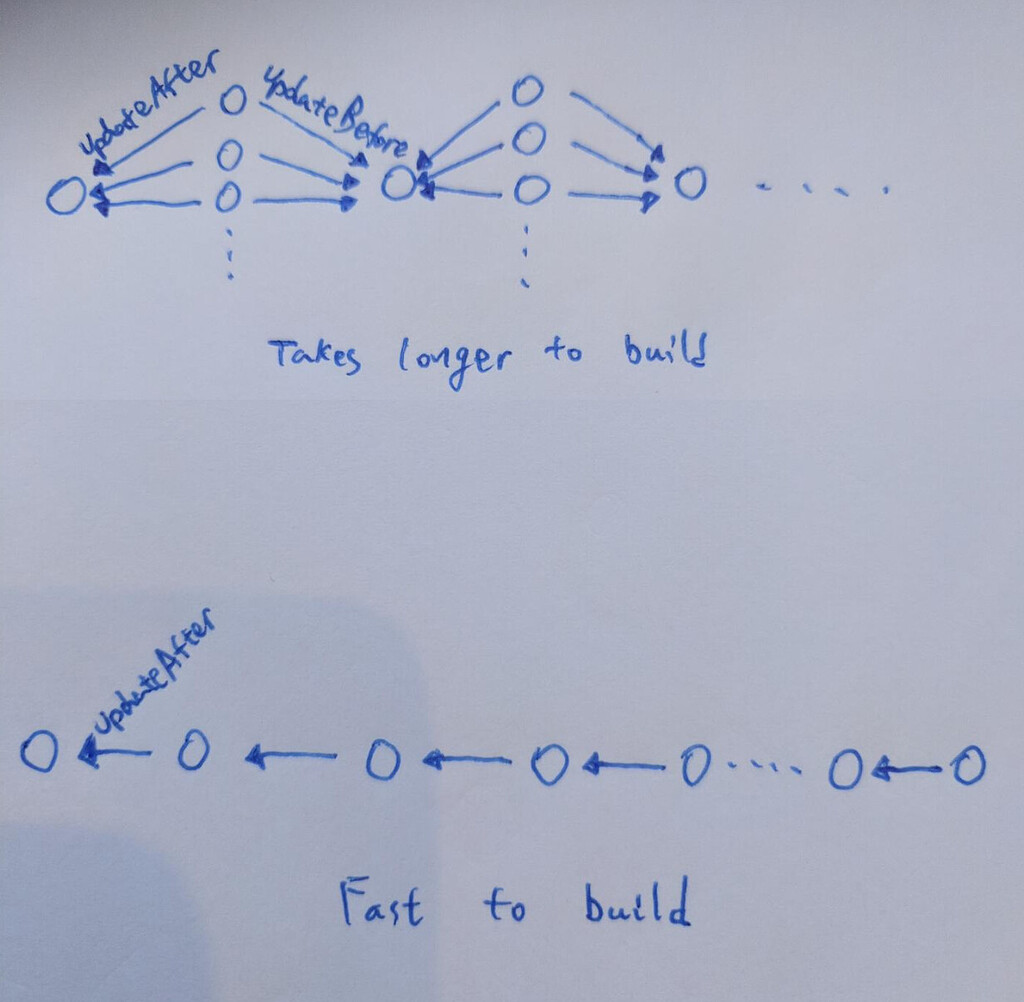 updateAfter
updateBefore
Takes longer to build
updateAfter
Fast to build